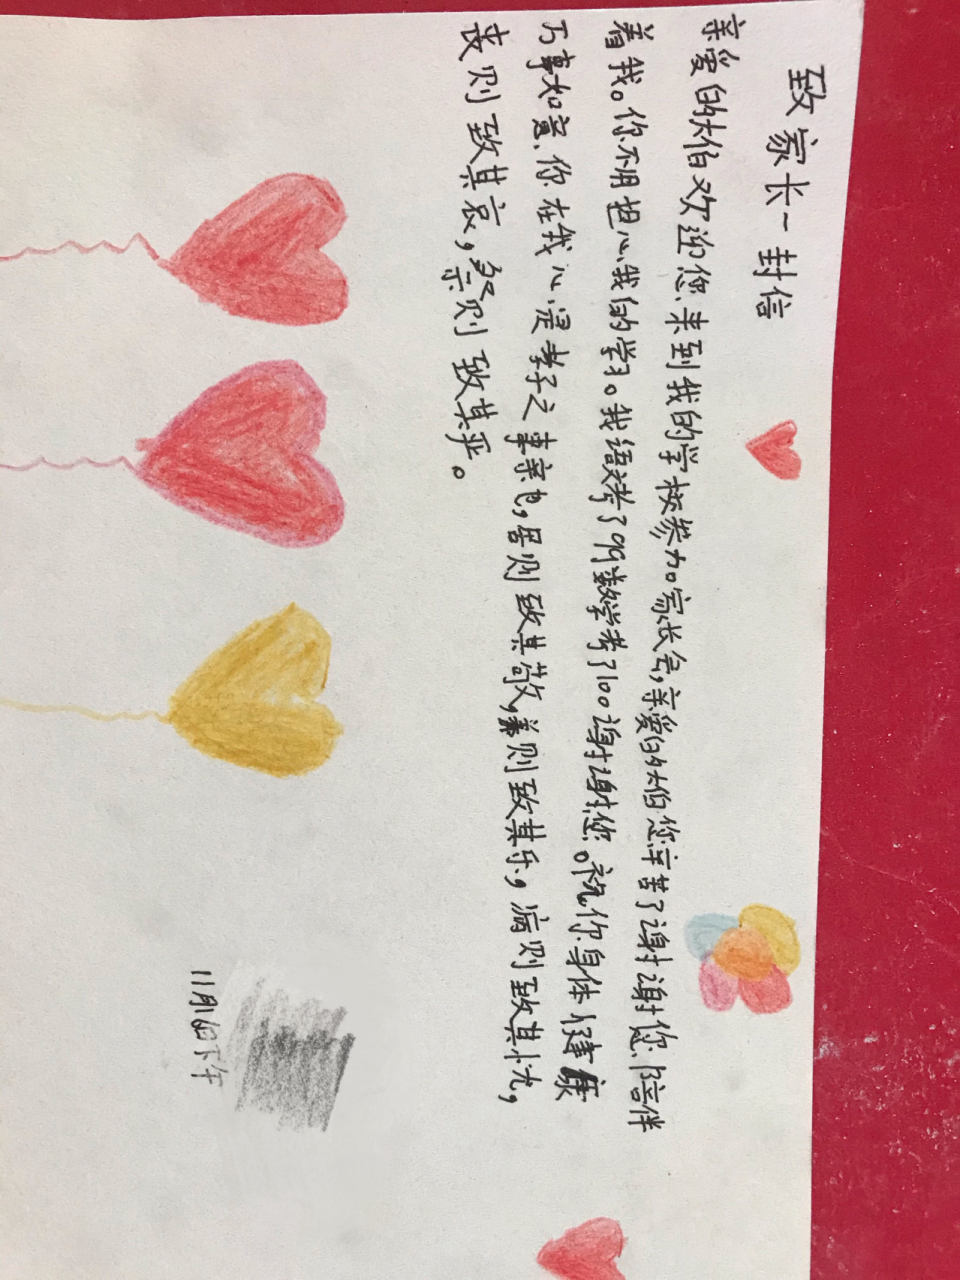 致家长一封信
亲爱的大伯欢迎您来到我的学校参加家长会,亲爱的大伯您辛苦了谢谢您陪伴
着我。你不用担心我的学习。我语文考了99数学考了100谢谢您。祝你身体健康
万事如意你在我心是孝子之事亲也,居则致其敬,养则致其乐,病则致其忧,
丧则致其哀,祭则致其严。
11月16日下午